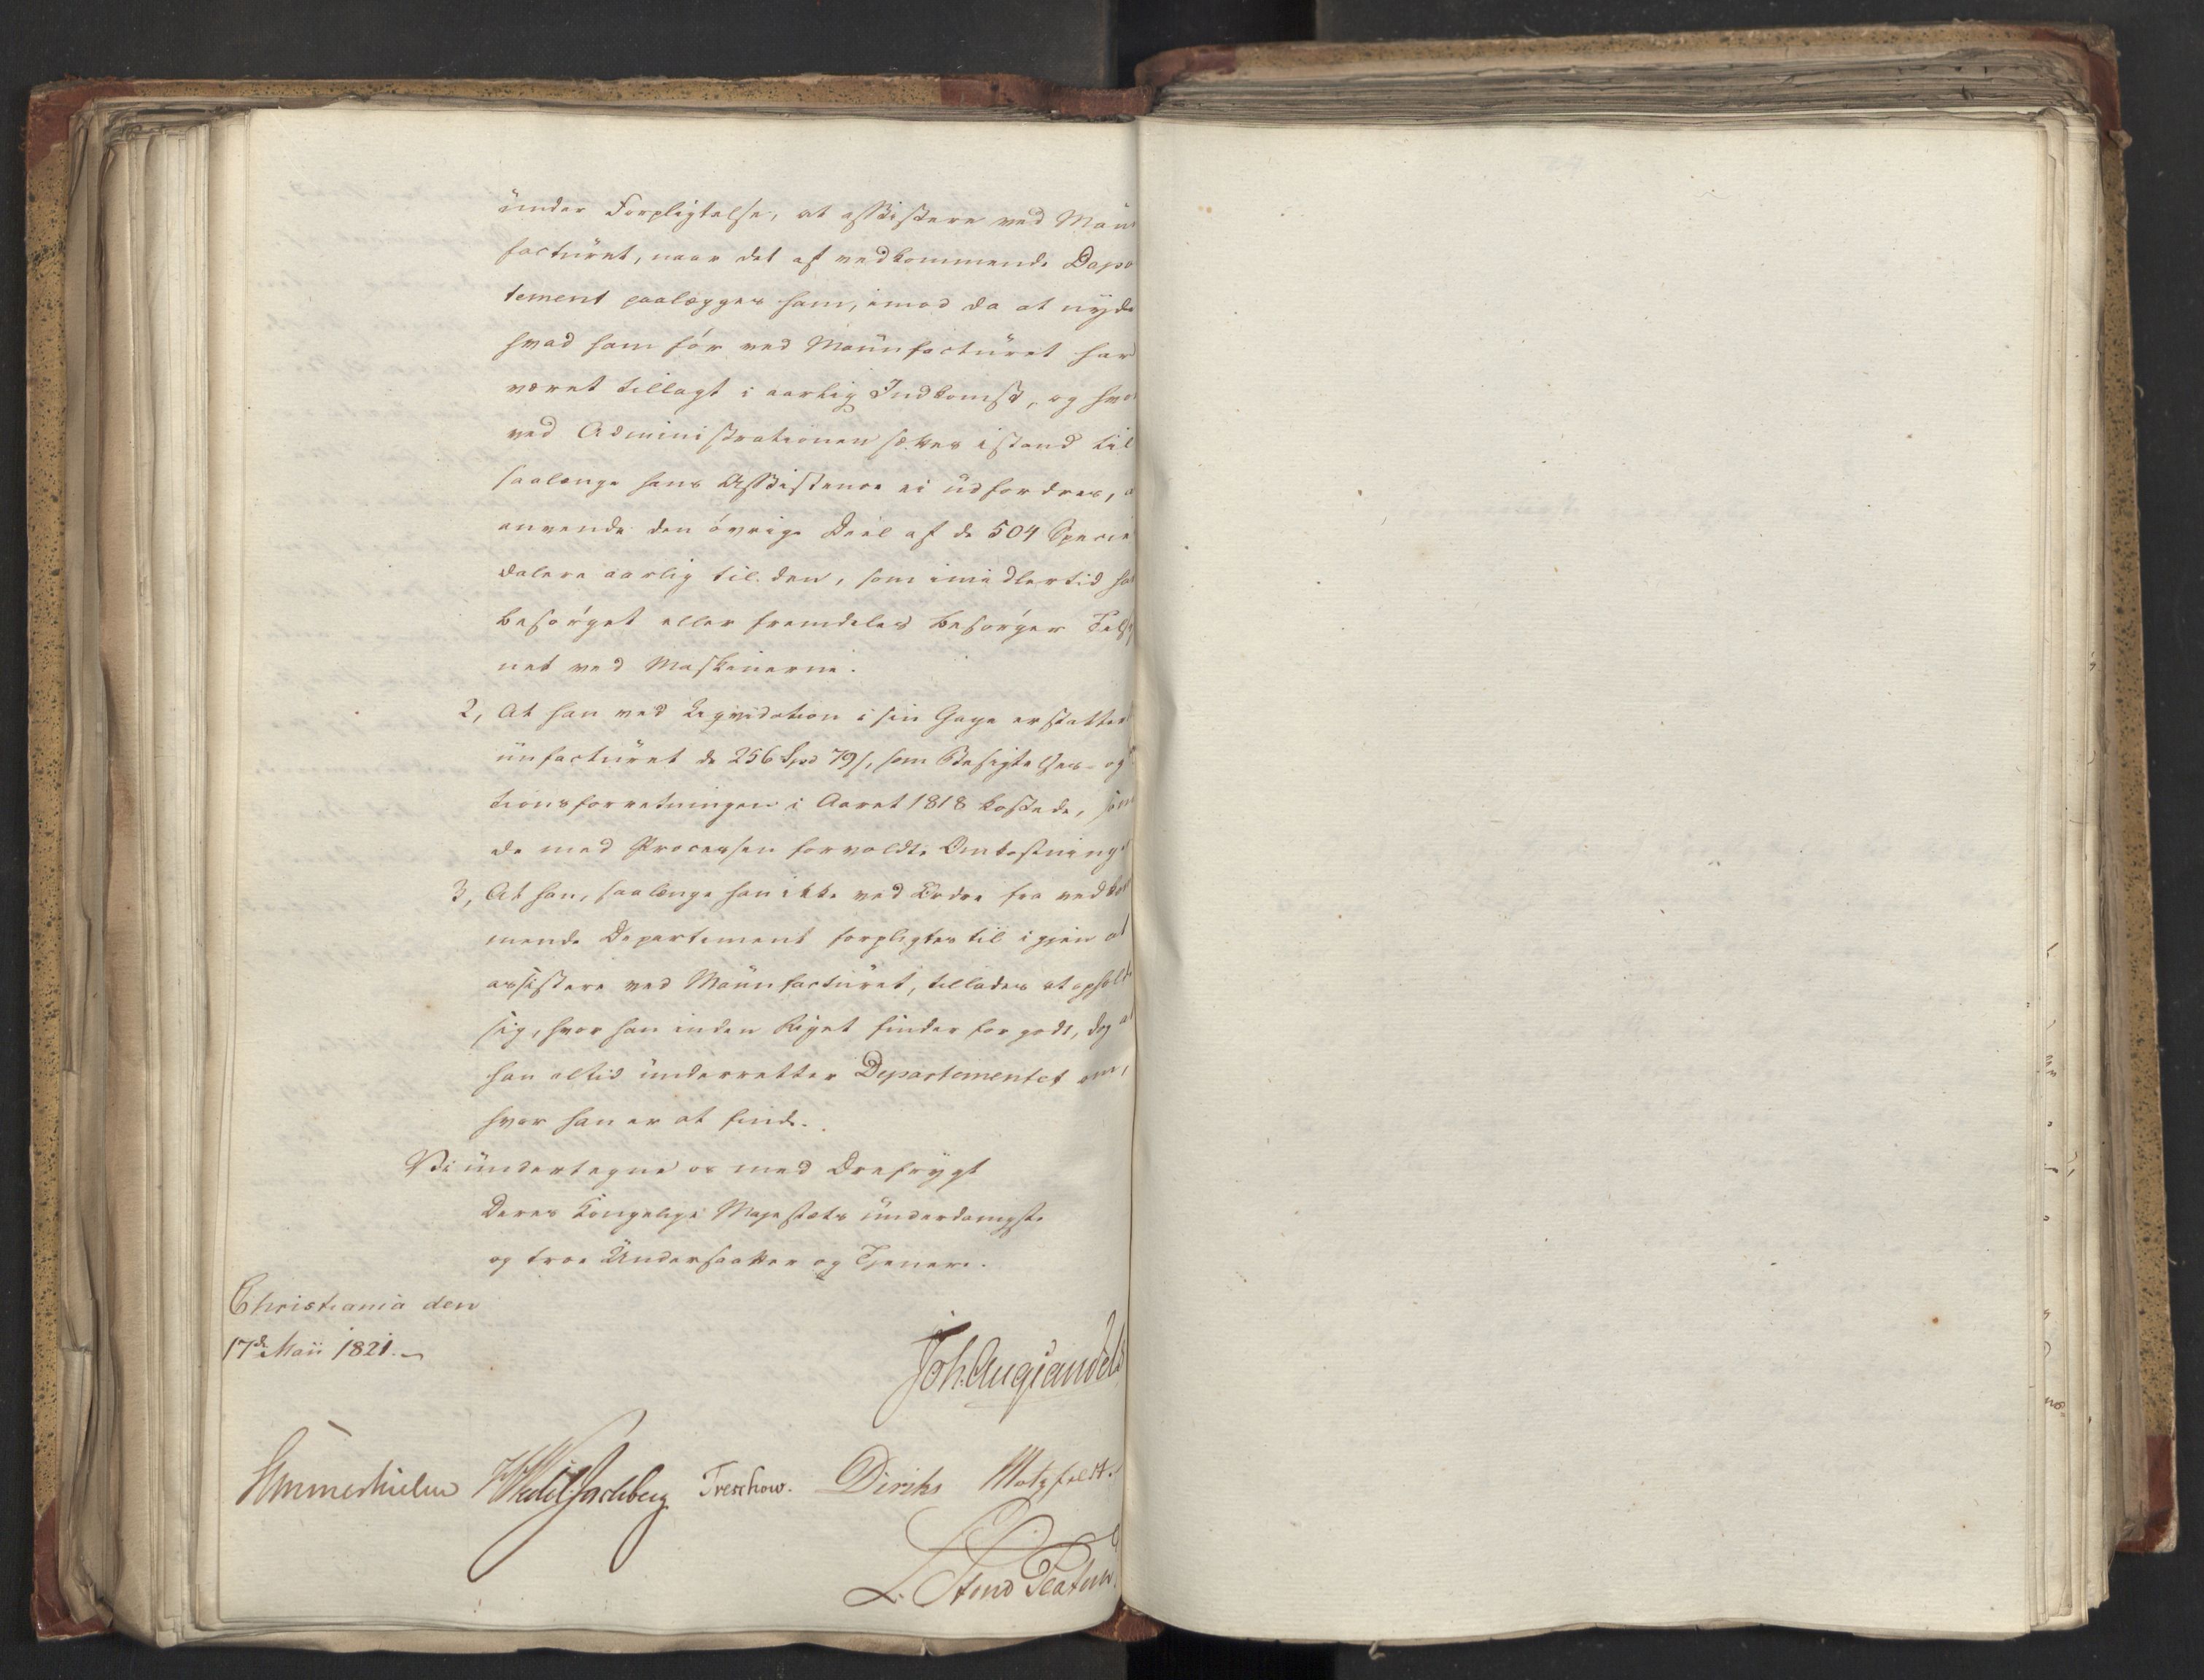 under Forpligtelse, at assistere ved Mau
facturet, naar det af vedkommende Depar
tement paalægges ham, imod da at nyde
hvad ham før ved Maunfacturet har
været tillagt i aarlig Indkomst, og hvo
ved Administrationen sættes istand til
saalænge hans Assistence ei udfordres, a
anvende den øvrige Deel af de 504 Specie
daler aarlig til den, som imidlertid ha
besørget eller fremdeles besørger Tils
net ved Maskinerne.
2, At han ved Liqvidation i sin Gage erstatter
unfacturet de 256 Spd 79 s, som Besigtelses- og
tionsforretningen i Aaret 1818 kostede, sam
de med Processen forvoldte Omkostning
3, At han, saalænge han ikke ved Ordre fra vedkom
mende Departement forpligtes til igjen at
assistere ved Maunfacturet, tillades at opholde
sig, hvor han inden Riget finder for godt, dog at
han altid underretter Departementet om,
hvor han er at finde.
Vi undertegne os med Ærefrygt
Deres Kongelige Majestæts underdanigste
og troe Undersaatter og Tjenere.
Christiania den
17de Maii 1821.
Joh. Aug. Sandels
Sommerhielm HWedel Jarlsberg Treschow. Diriks Motzfeldt.
L. Stoud Platou